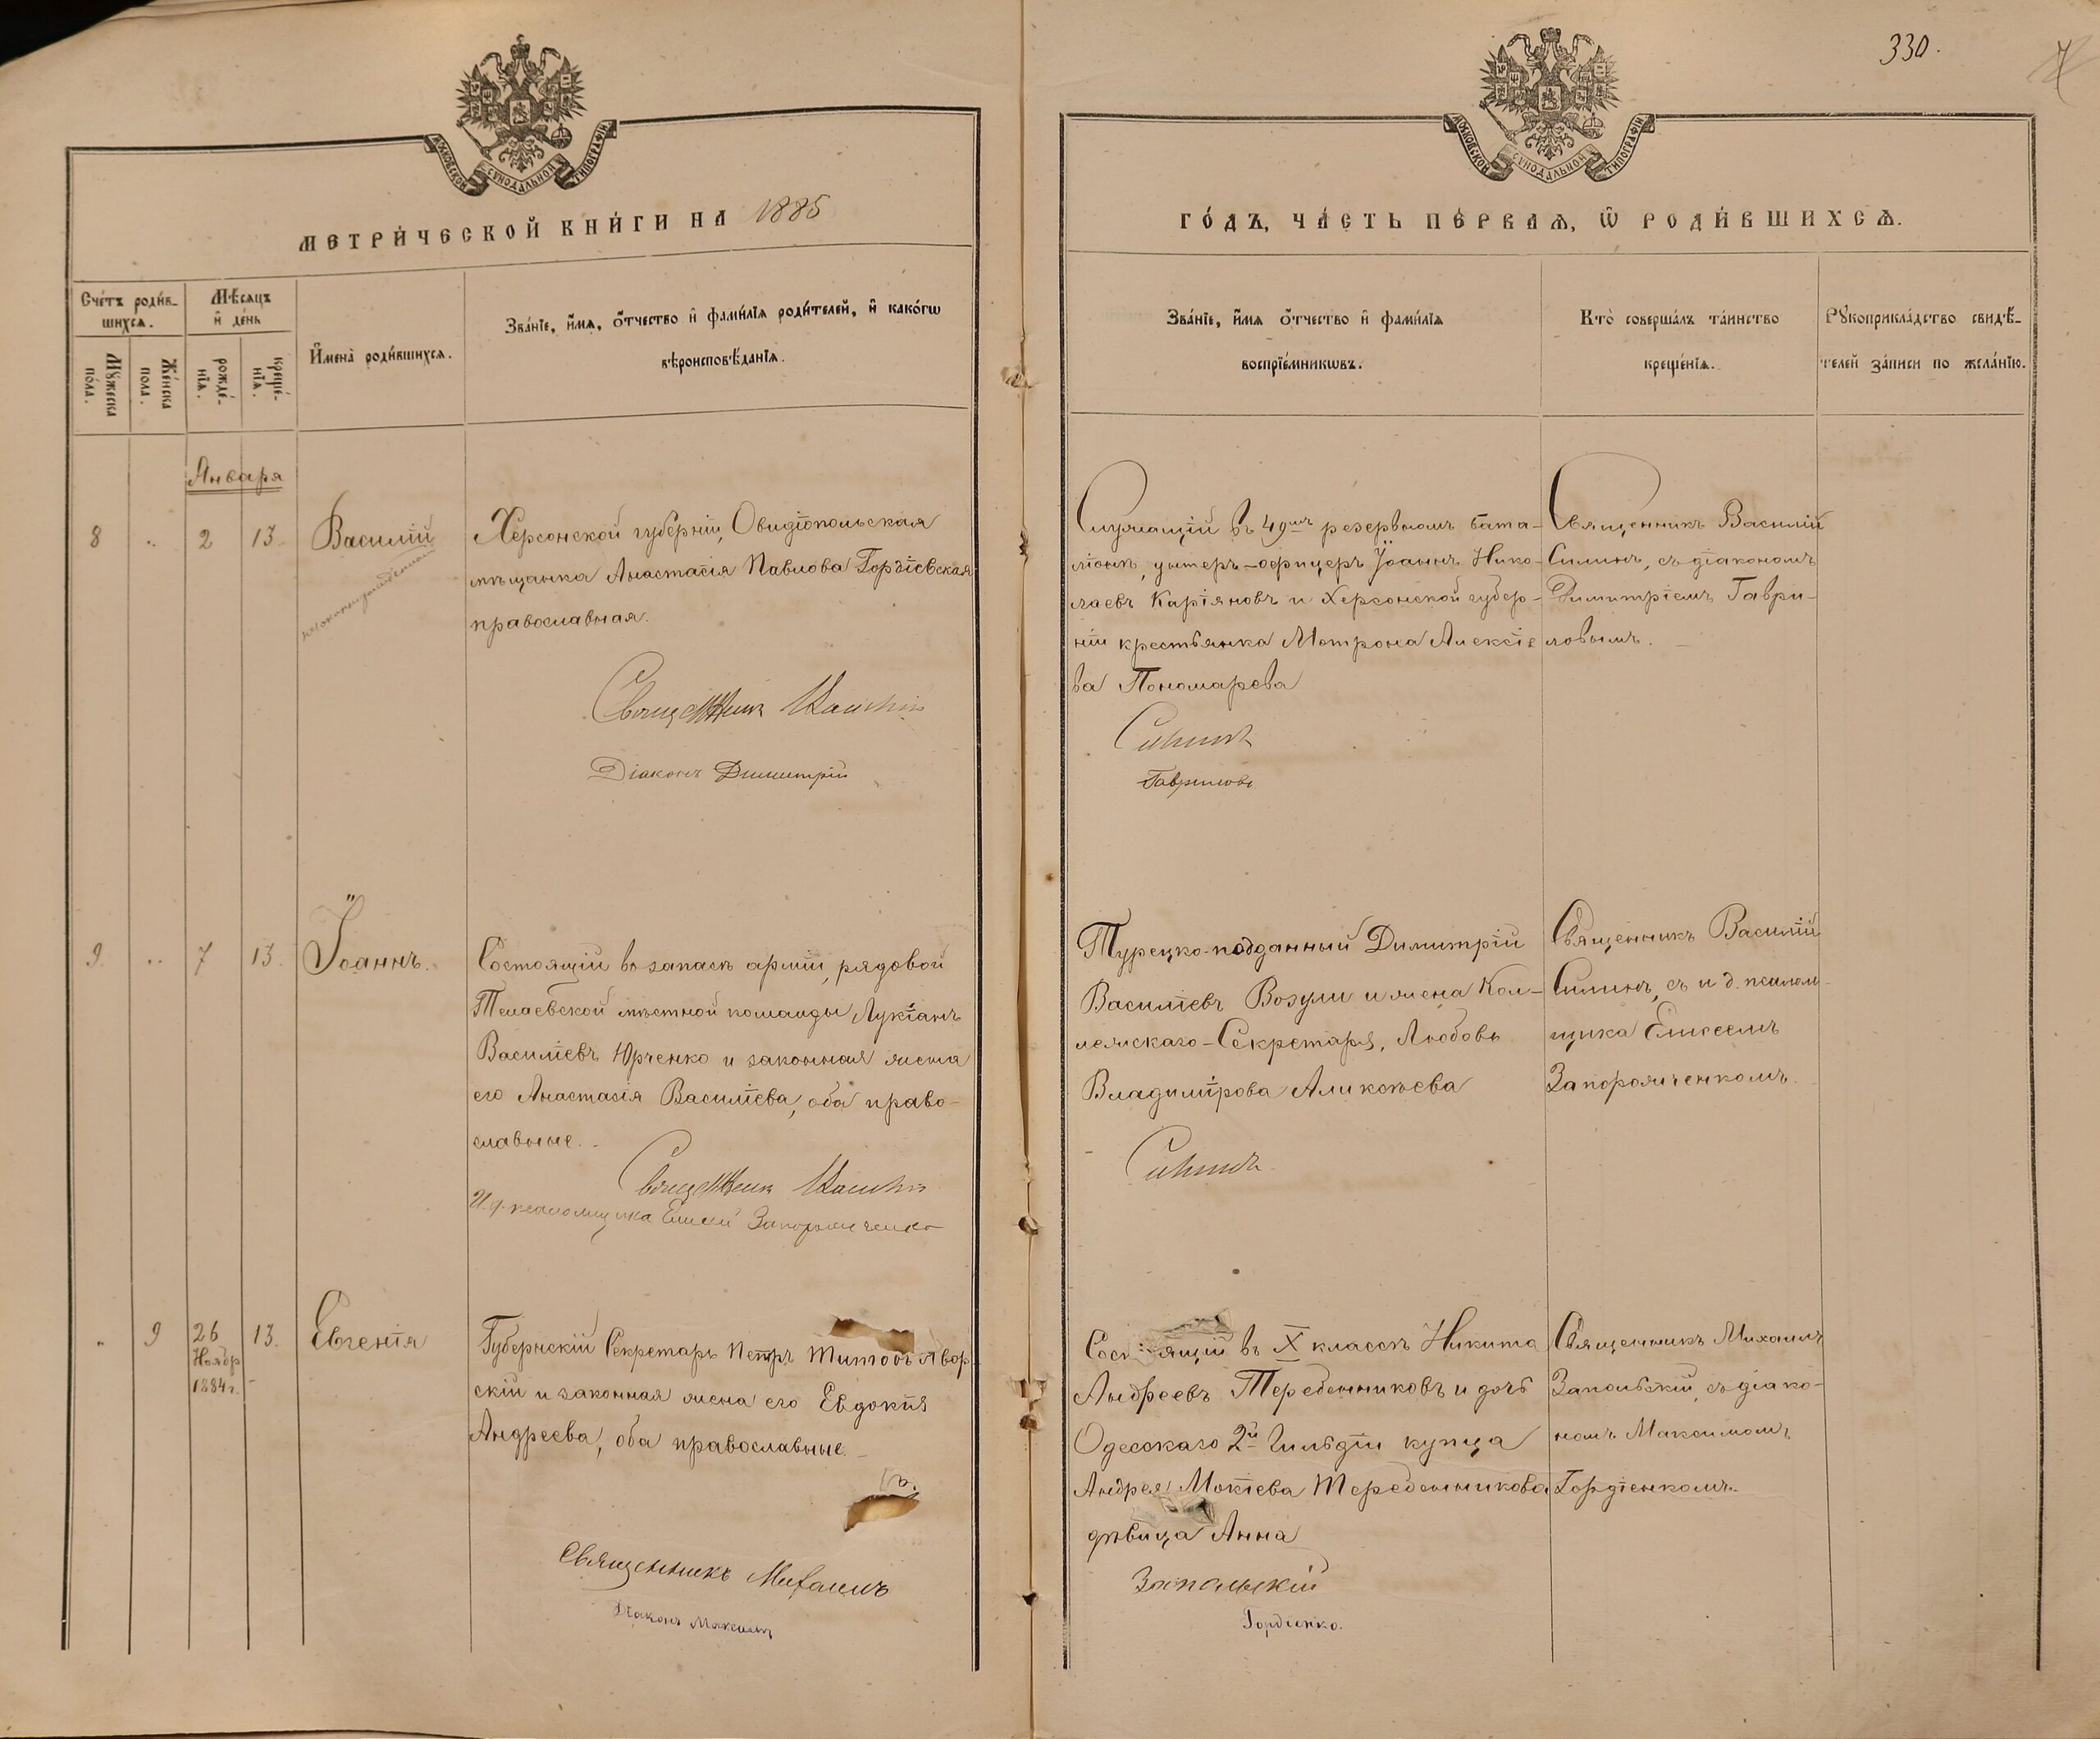 330.
МОСКОВСКОЙ СѴНОДАЛЬНОЙ ТИПОГРАФІИ
МОСКОВСКОЙ СѴНОДАЛЬНОЙ ТИПОГРАФІИ
МЕТРИ́ЧЕСКОЙ КНИ́ГИ НА 1885
ГО́ДЪ, ЧА́СТЬ ПЕ́РВАѦ, Ѡ҆ РОДИ́ВШИХСѦ.
Сче́тъ роди́в-
шихсѧ.
Мѣ́сѧцъ
и҆ де́нь
Мꙋ́жеска
по́ла.
Же́нска
пола.
рожде́-
нїѧ.
креще́-
нїѧ.
И҆мена̀ роди́вшихсѧ.
Зва́нїе, и҆́мѧ, ѻ҆́тчество и҆ фами́лїѧ роди́телей, и҆ како́гѡ
вѣроисповѣ́данїѧ.
Зва́нїе, и҆́мѧ ѻ҆́тчество и҆ фами́лїѧ
воспрїе́мникѡвъ.
Кто̀ соверша́лъ та́инство
креще́нїѧ.
Рꙋкоприкла́дство свидѣ́-
телей за́писи по жела́нїю.
Января
8 .. 2 13. Василій
Херсонской губерніи, Овидіопольская
мѣщанка Анастасія Павлова Гордіевская
православная.
Священникъ Василій
Діаконъ Димитрій
Служащій въ 49мъ резервномъ бата-
ліонѣ, унтеръ-офицеръ Іоаннъ Нико-
лаевъ Каріяновъ и Херсонской губер-
ніи крестьянка Матрона Алексіе
ва Пономарева
Силинъ
Гавриловъ
Священникъ Василій
Силинъ, съ діакономъ
Димитріемъ Гаври-
ловымъ.
9. .. 7 13. Іоаннъ.
Состоящій въ запасѣ арміи, рядовой
Телаевской мѣстной команды Лукіанъ
Василіевъ Юрченко и законная жена
его Анастасія Василіева, оба право-
славные.
Священникъ Василій
И. д. псаломщика Елисей Запорожченко
Турецко-подданный Димитрій
Василіевъ Возули и жена Кол-
лежскаго-Секретаря, Любовь
Владимірова Аликсѣева
Силинъ
Священникъ Василій
Силинъ, съ и. д. псалом-
щика Елисеемъ
Запорожченкомъ.
.. 9 26 13. Евгенія
Ноябр
1884 г.
Губернскій Секретарь Петръ Титовъ Явор
скій и законная жена его Евдокія
Андреева, оба православные.
Священникъ Михаилъ
Діаконъ Максимъ
Состоящій въ X классѣ Никита
Андреевъ Теребенниковъ и дочь
Одесскаго 2й Гильдіи купца
Андрея Мокіева Теребенникова
дѣвица Анна
Запольскій
Гордіенко.
Священникъ Михаилъ
Запольскій, съ діако-
номъ Максимомъ
Гордіенкомъ.